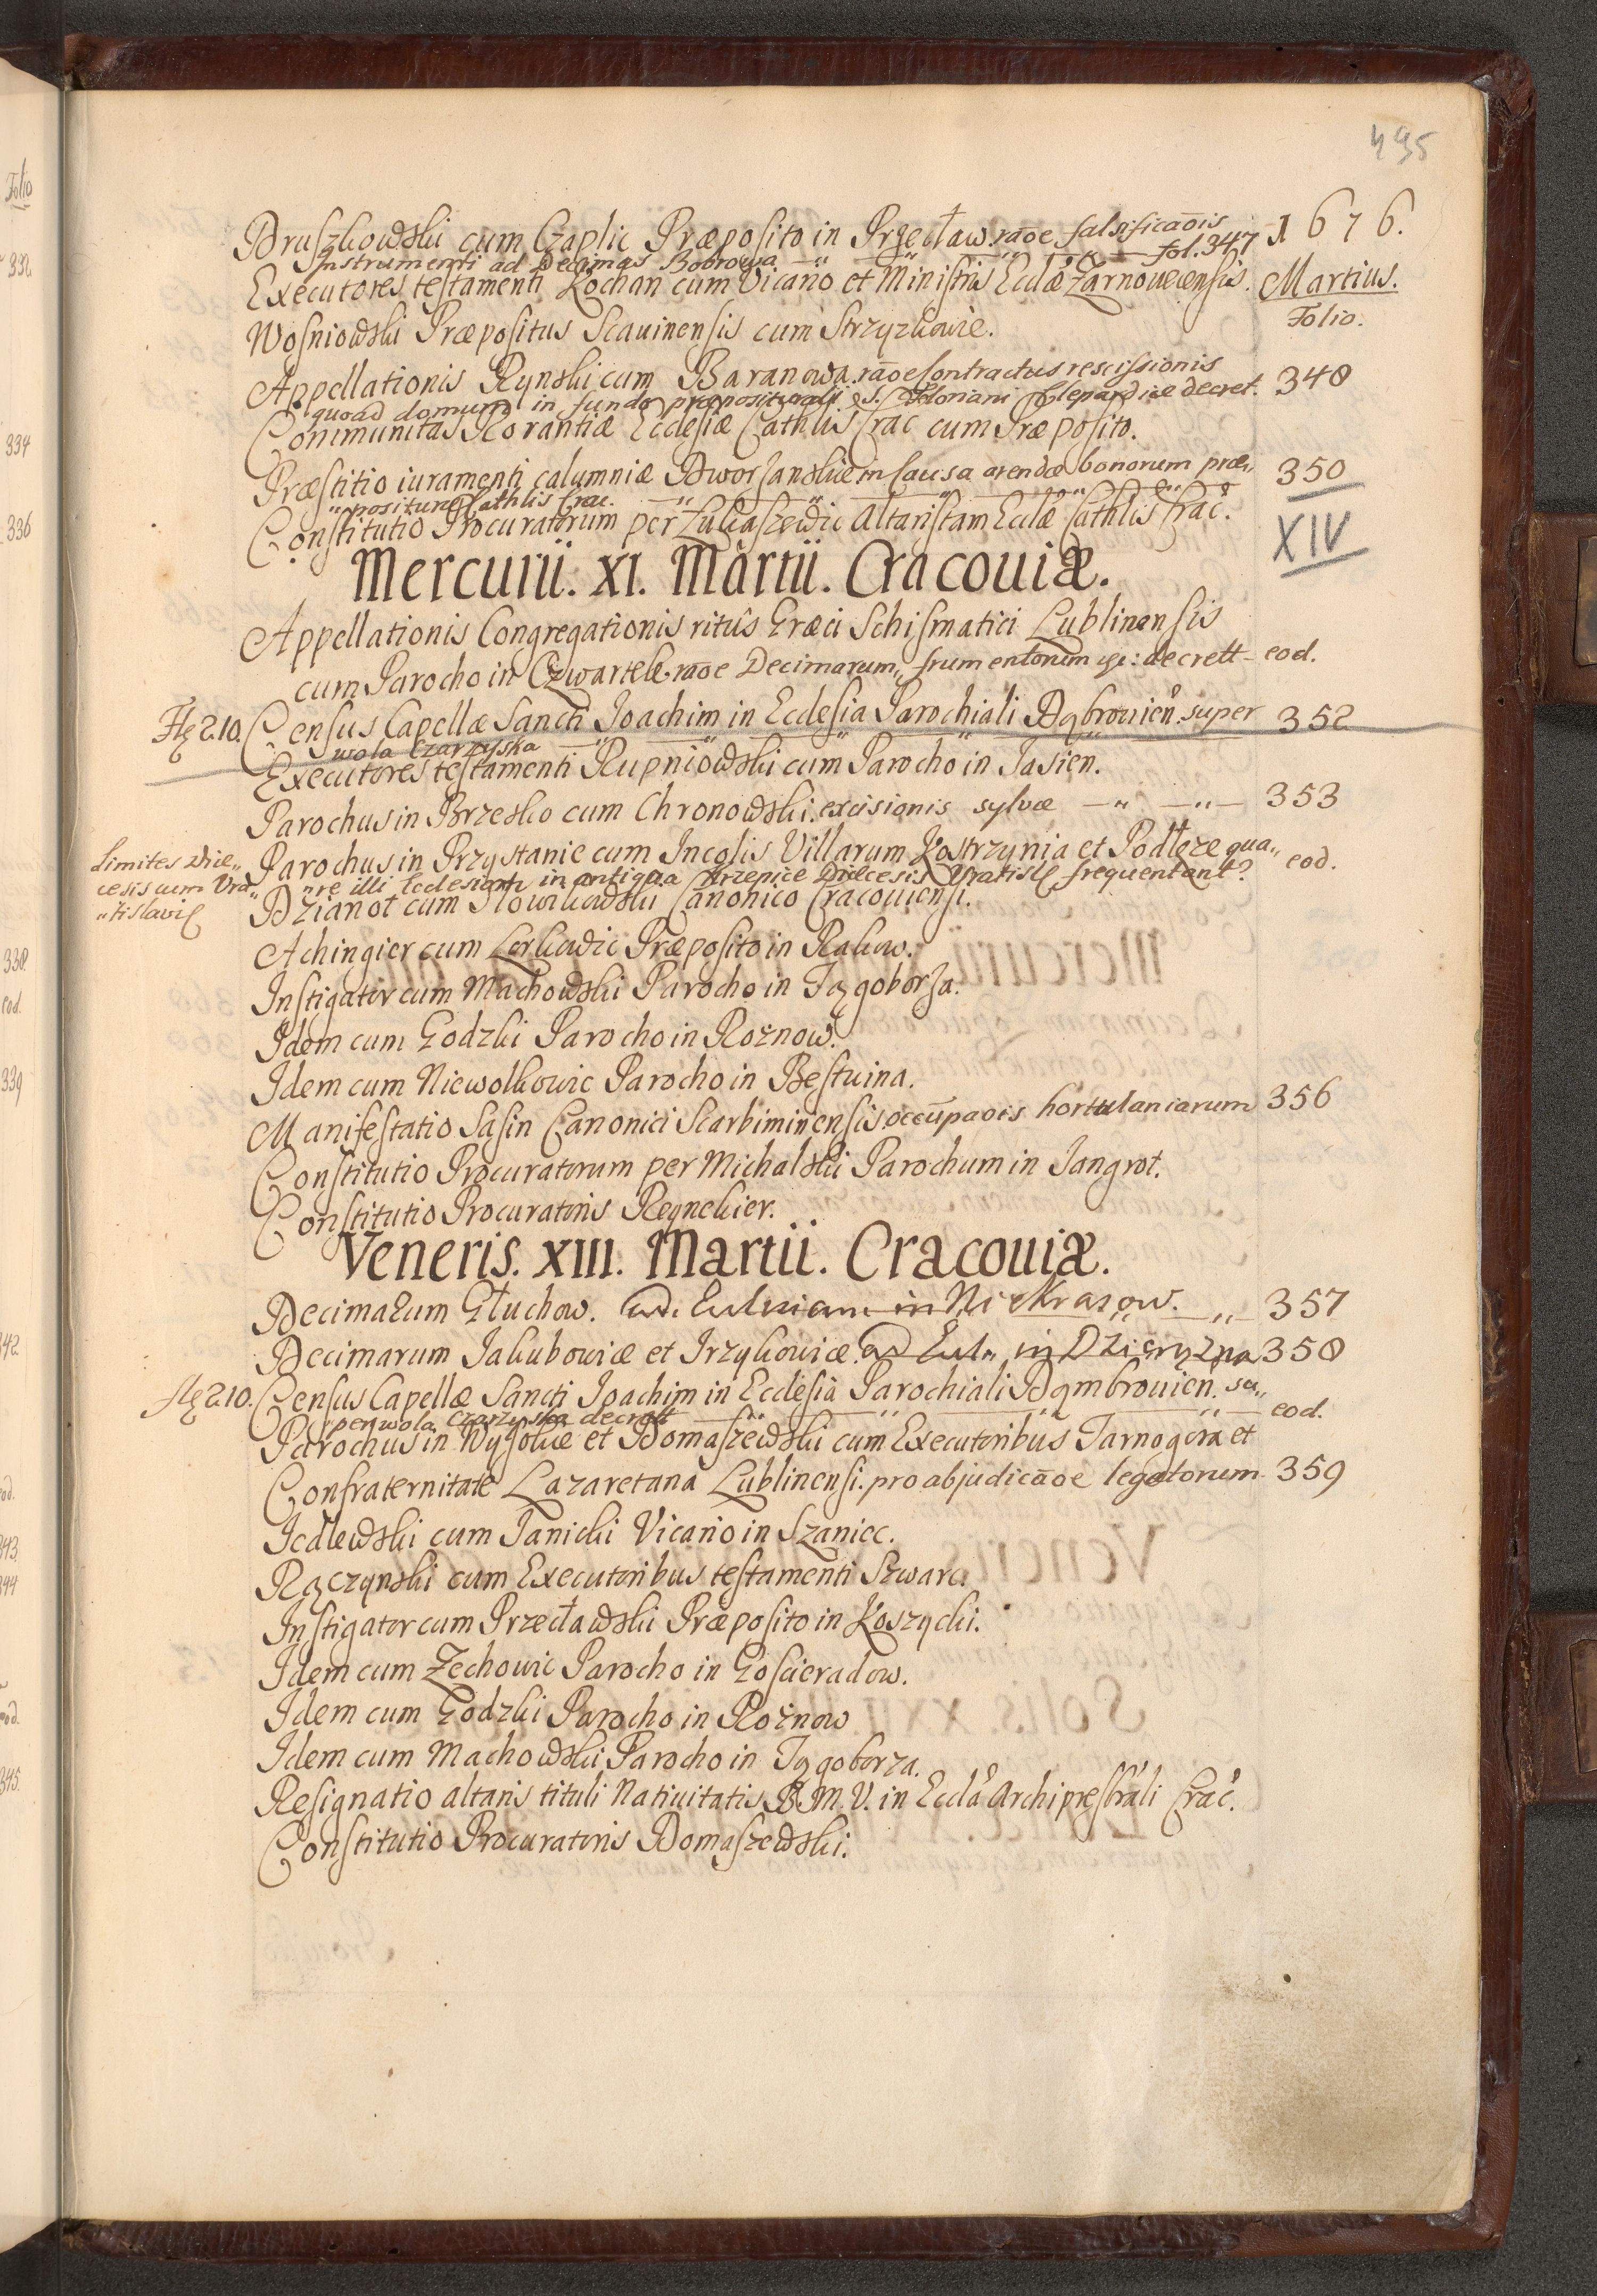 495
Druszkowski cum Czaplic Præposito in Przecław. raõe falsificaõis 1676.
Instrumenti ad Decimas Bobrowa fol. 347
Executores testamenti Kochan cum Vicario et Ministris Ecclæ Zarnovecensis. Martius.
Wosniowski Præpositus Scavinensis cum Strzyzkowie. Folio.
Appellationis Rynski cum Baranowa. raõe contractus rescissionis
quoad domum in fundo præpositurali S. Floriani Clepardiæ decret. 348
Communitas Rorantiæ Ecclesiæ Cathlis Crac cum Præposito.
Præstitio iuramenti calumniæ Dworzanskie in causa arendæ bonorum præ„ 350
„posituræ Cathlis Crac.
Constitutio Procuratorum per Łukaszewic Altaristam Ecclæ Cathlis Crac.
XIV
Mercurii. XI. Martii. Cracoviæ.
Appellationis Congregationis ritûs Græci Schismatici Lublinensis
cum Parocho in Czwartek. raõe Decimarum„ frumentorum decrett eod.
210. Census Capellæ Sancti Joachim in Ecclesia Parochiali Dąbrovien. super 352
wola Czarzyska
Executores testamenti Rupniowski cum Parocho in Jasien.
Parochus in Brzesko cum Chronowski. excisionis sylvæ 353
Limites Diœ„
cesis cum Vra„
„tislavi
Parochus in Przystanie cum Incolis Villarum Kostrzynia et Podłeze qua„ eod.
„re illi Ecclesiam in antiqua Krzepice Diœcesis Vratisl frequentant?
Dzianot cum Nowikowski Canonico Cracoviensi.
Achingier cum Lorkowic Præposito in Rakow.
Instigator cum Machowski Parocho in Tęgoborza.
Idem cum Godzki Parocho in Rożnow.
Idem cum Niewolkowic Parocho in Bestvina.
Manifestatio Sasin Canonici Scarbimirensis occũpaõis hortulaniarum 356
Constitutio Procuratorum per Michalski Parochum in Jangrot.
Constitutio Procuratoris Reynekier.
Veneris. XIII. Martii. Cracoviæ.
Decimarum Głuchow. ad in Niekrasow. 357
Decimarum Jakubowice et Irzykowice. ad Eccl„ in Dzierązna 358
210. Census Capellæ Sancti Joachim in Ecclesia Parochiali Dąmbrovien. su„ eod.
„per wola Czarzyska decrett
Parochus in Wysokie et Domaszewski cum Executoribus Tarnogora et
Confraternitate Lazaretana Lublinensi. pro abjudicãoe legatorum 359
Jedlewski cum Janicki Vicario in Szaniec.
Rączynski cum Executoribus testamenti Szwarc.
Instigator cum Przecławski Præposito in Koszycki.
Idem cum Zechowic Parocho in Goscieradow.
Idem cum Godzki Parocho in Rożnow
Idem cum Machowski Parocho in Tęgoborza.
Resignatio altaris tituli Nativitatis B. M. V. in Eccla Archipresbrali Crac.
Constitutio Procuratoris Domaszewski.